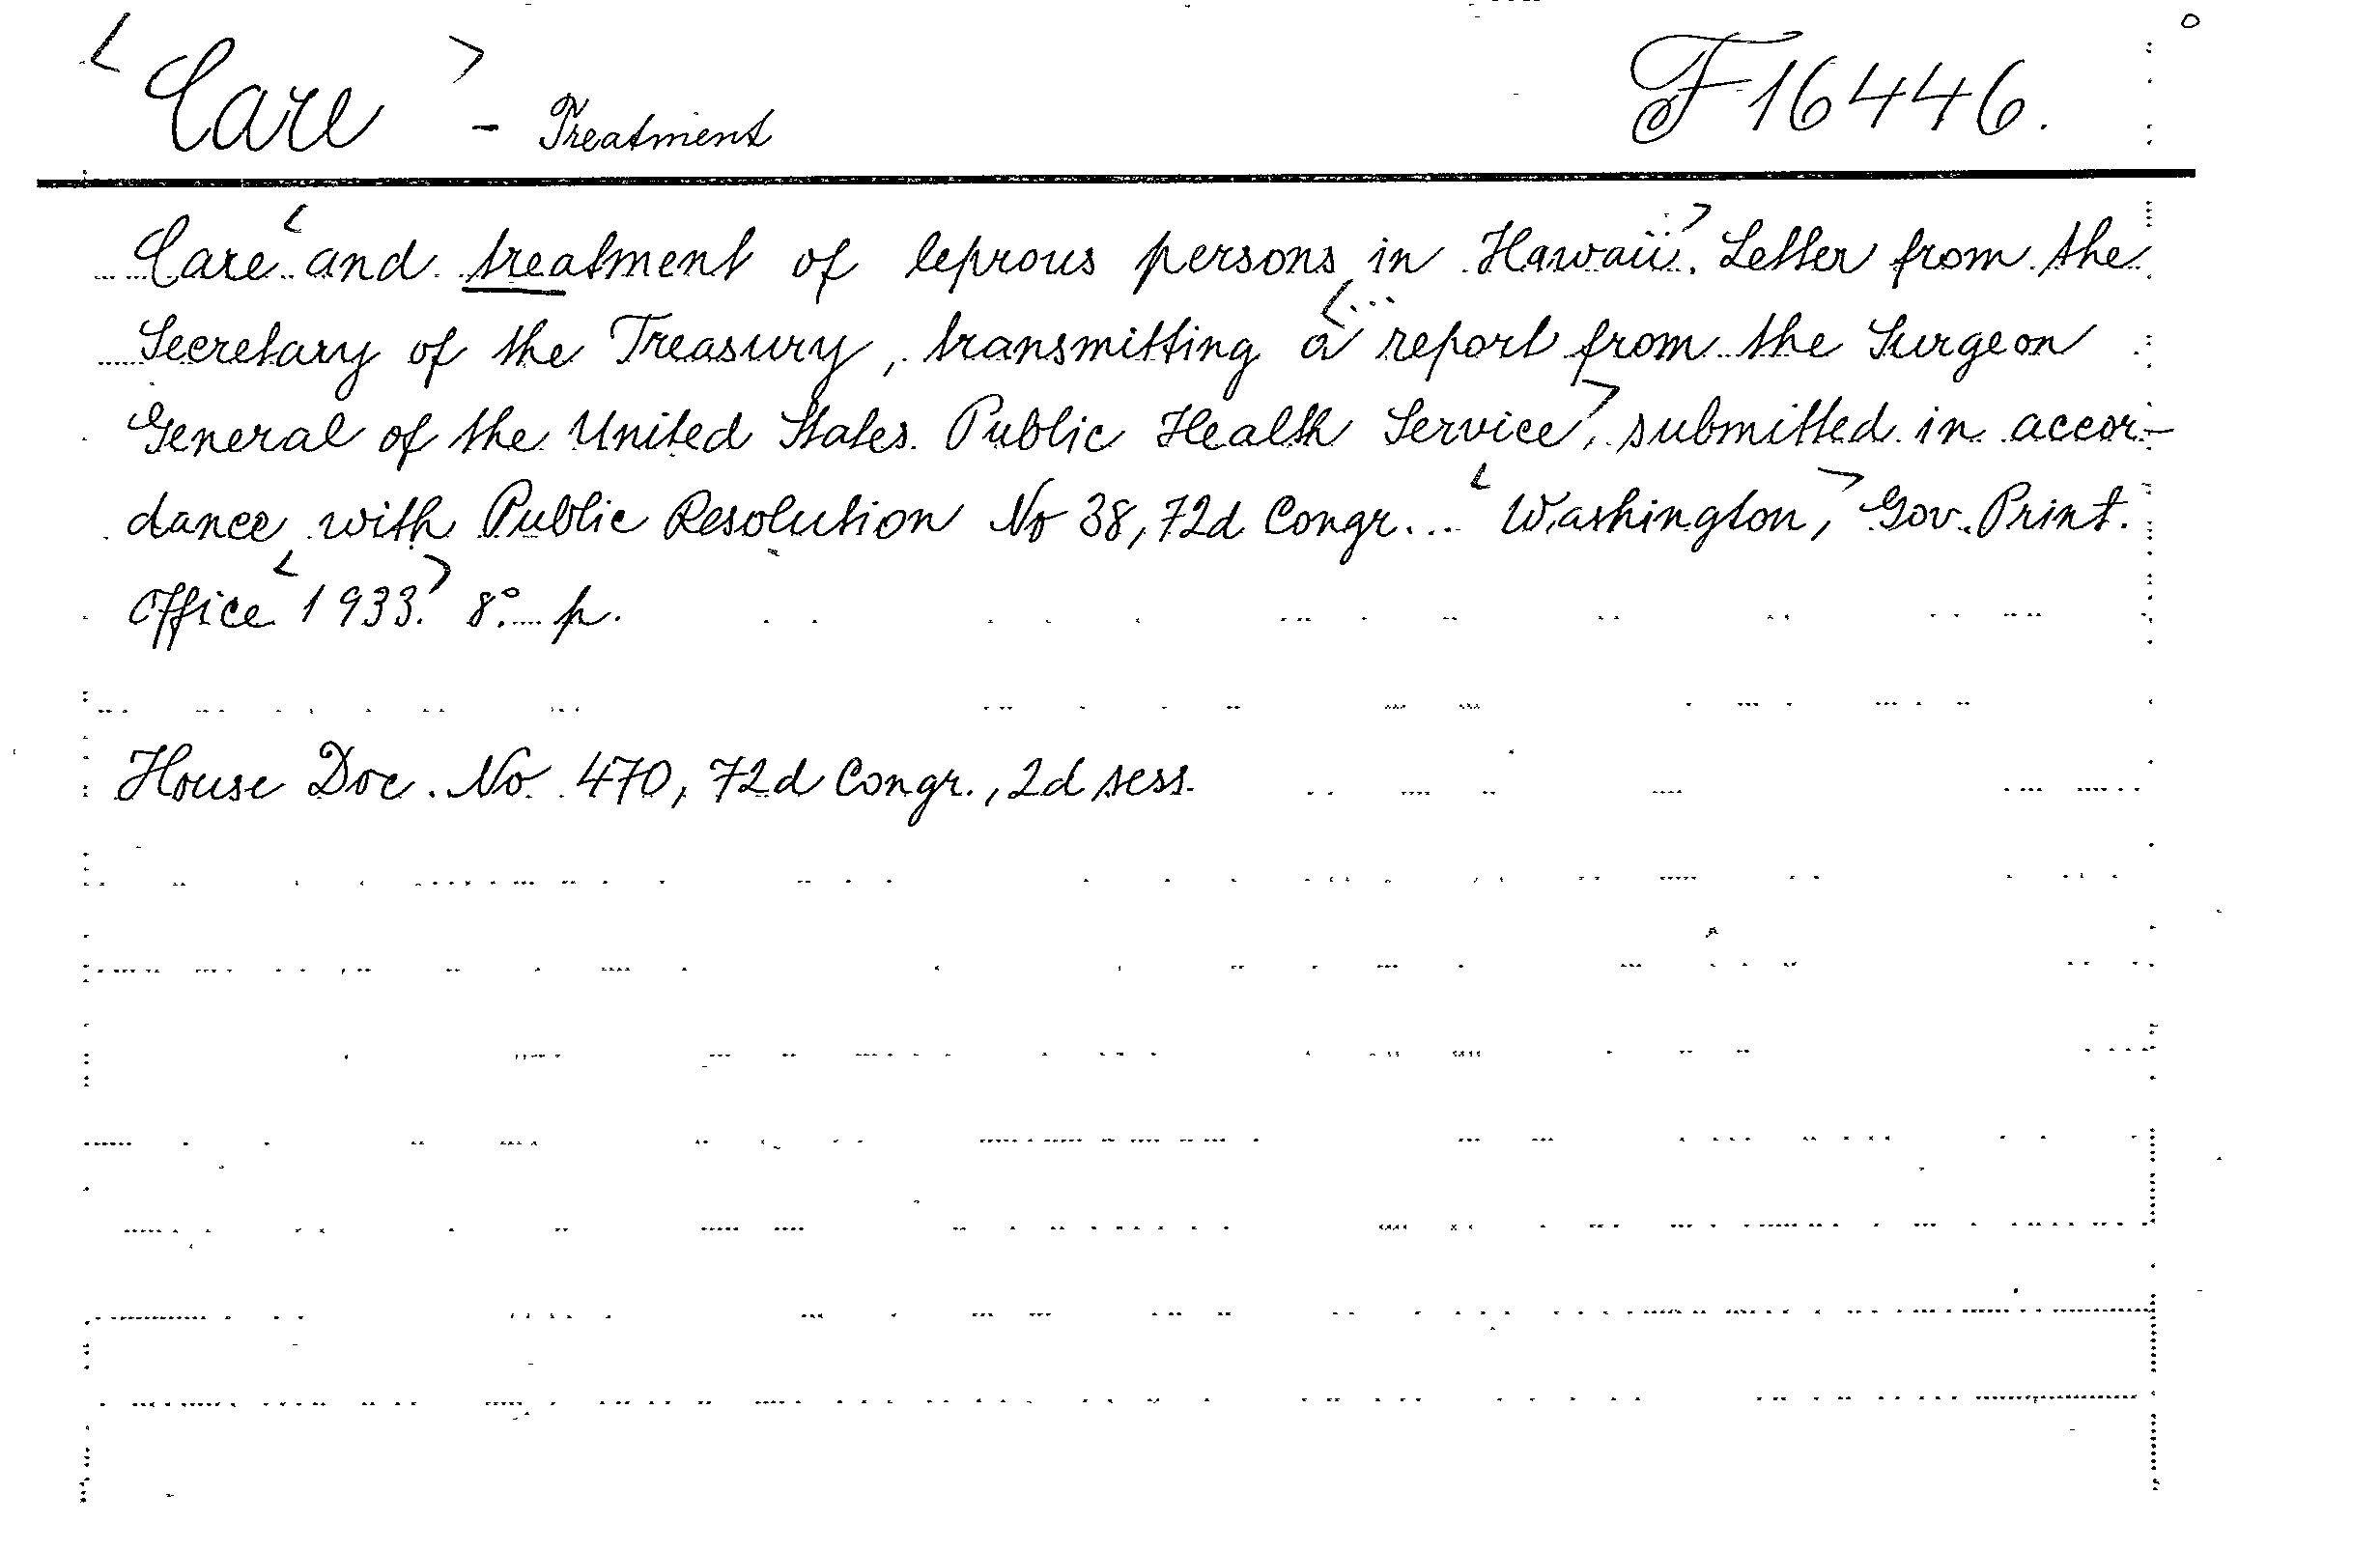 <Care> - Treatment F16446.
Care< and treatment of leprous persons in Hawaii>. Letter from the
Secretary of the Treasury, transmitting a <... report from the Surgeon
General of the United States Public Health Service>, submitted in accor-
dance with Public Resolution No 38, 72d Congr... <Washington,> Gov. Print.
Office <1933.> 8°. p.
House Doc. No 470, 72d Congr., 2d sess.